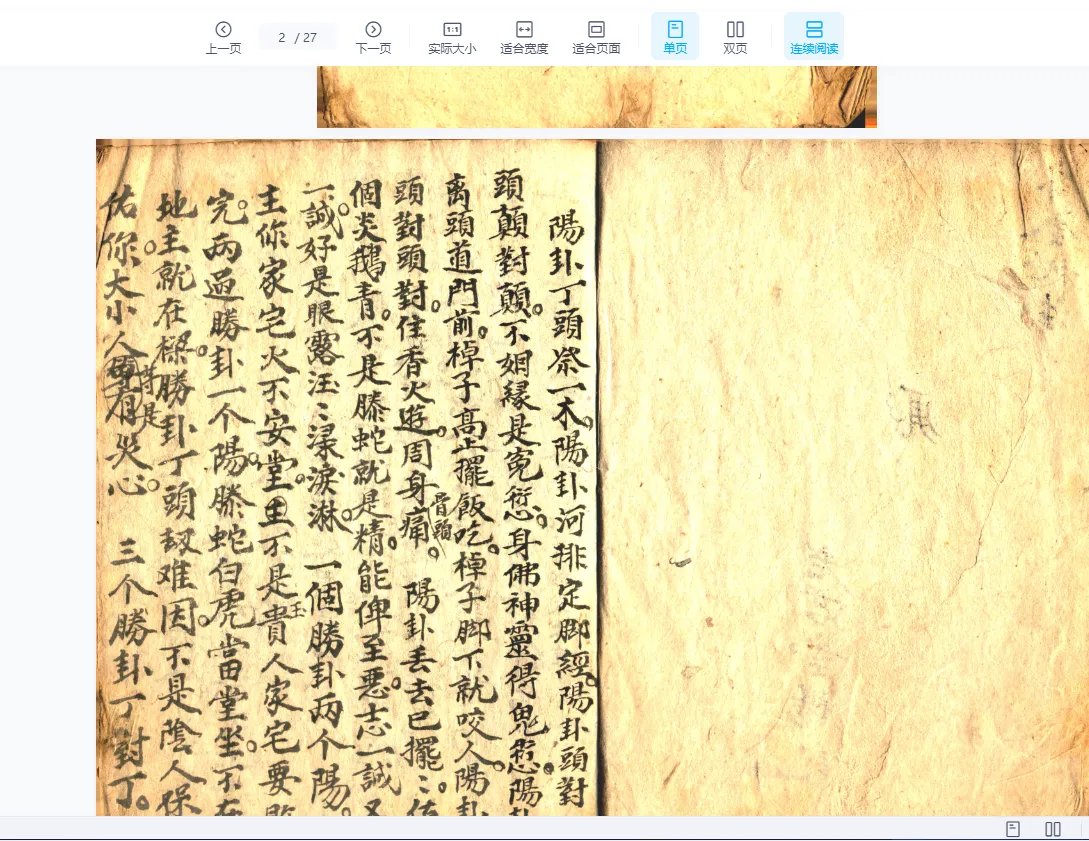 上一页
2 / 27
下一页
实际大小
适合宽度
适合页面
单页
双页
连续阅读
陽卦丁頭祭一木。陽卦河排定脚經。陽卦頭對
頭顛對顛。不姻緣是寃愆。身佛神靈得鬼愆。陽卦
离頭道門前。棹子高上擺飯吃。棹子脚下就咬人。陽卦
頭對頭對。住香火遊。周身骨頭痛。陽卦丢去已擺〻。佑
個炎鵝青。不是滕蛇就是精。能俾至惡。志一誠又
一誠。好是眼露汪〻渌淚淋。一個勝卦兩个陽。
主你家宅火不安堂。里不是貴人家宅要敗
完。兩過勝卦一个陽。滕蛇白虎當堂坐。不在
地主就在樑。勝卦丁頭刼难因。不是陰人保
佑你。大小人有哭心。三个勝卦丁對丁。